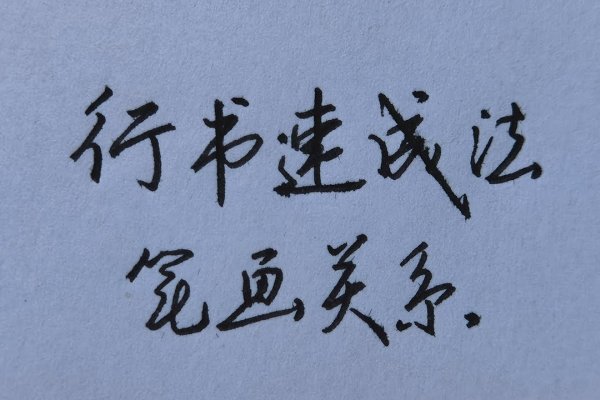 行书速成法
笔画关系